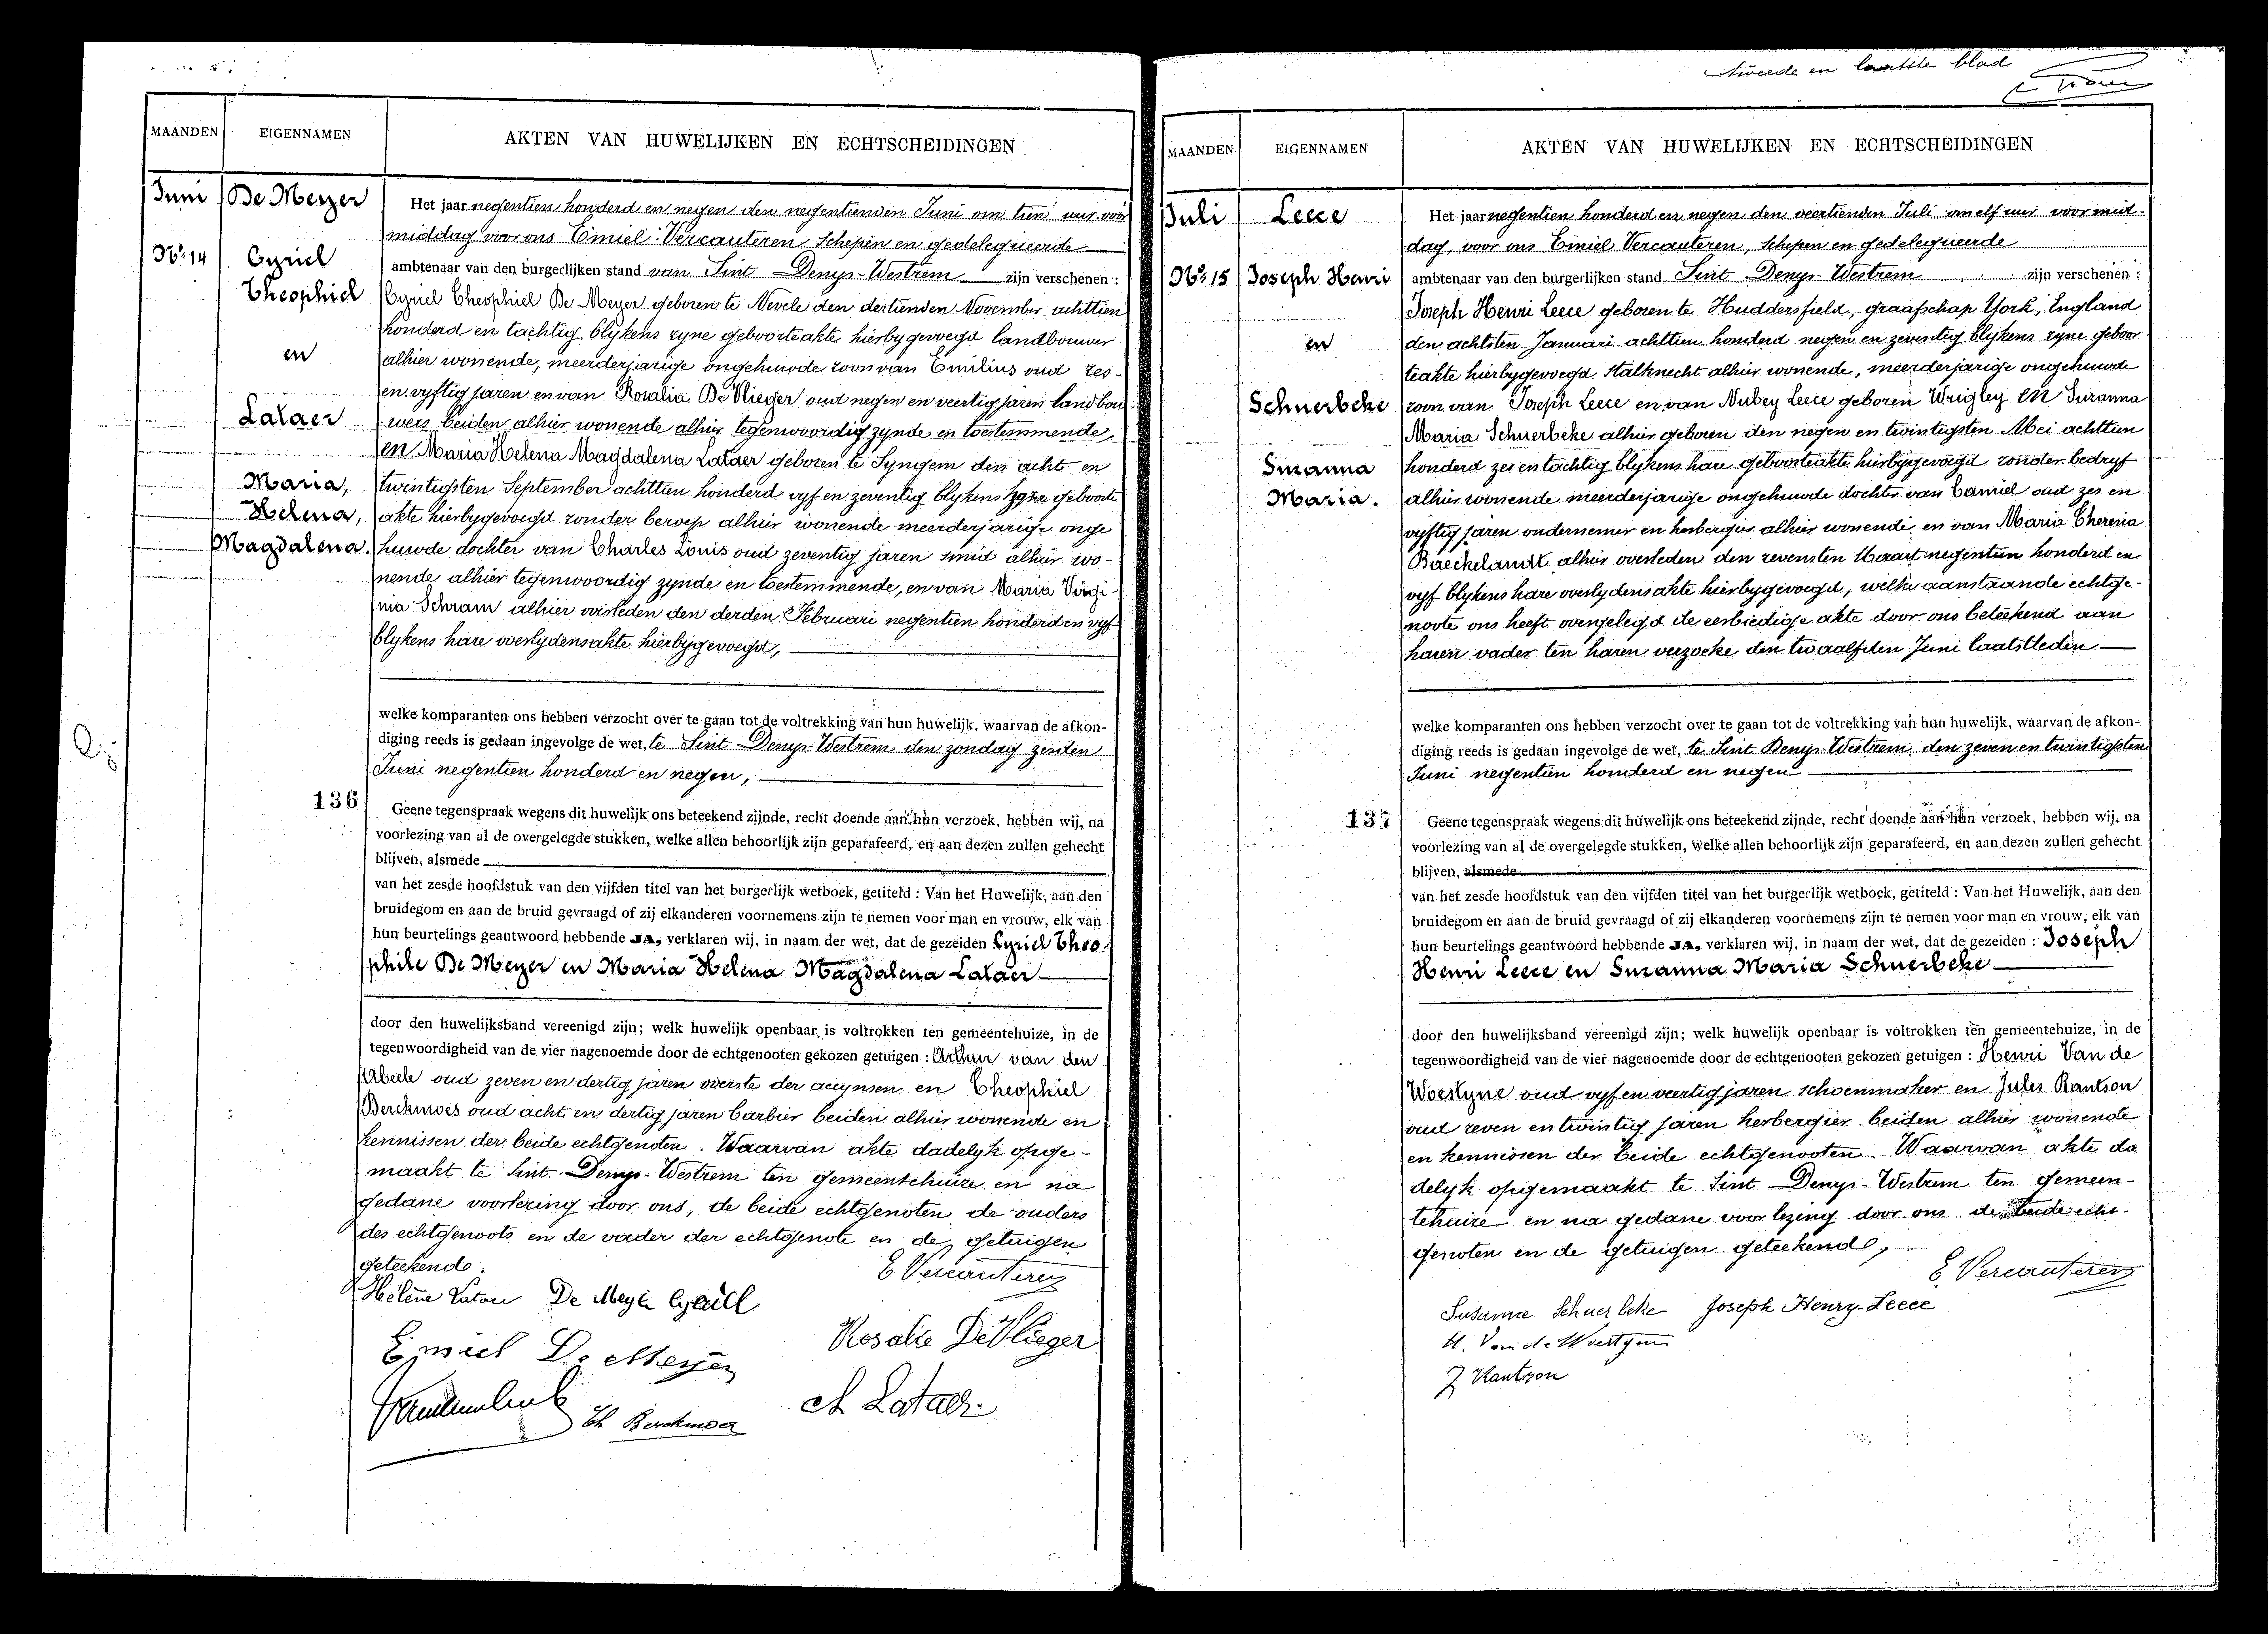 MAANDEN
EIGENNAMEN
AKTEN VAN HUWELIJKEN EN ECHTSCHEIDINGEN
Juni
De Meyer
No 14
Cyriel
Theophiel
en
Lataer
Maria,
Helena,
Magdalena.
136
Het jaar negentien honderd en negen den negentienden Juni om tien uur voor
middag voor ons Emiel Vercauteren Schepen en gedelegueerde
ambtenaar van den burgerlijken stand van Sint Denys-Westrem zijn verschenen :
Cyriel Theophiel De Meyer geboren te Nevele den dertienden November achttien
honderd en tachtig blykens zyne geboorteakte hierbygevoegd landbouwer
alhier wonende, meerderjarige ongehuwde zoon van Emilius oud zes-
en vyftig jaren en van Rosalia De Vlieger oud negen en veertig jaren landbou
wers beiden alhier wonende alhier tegenwoordig zynde en toestemmende,
en Maria Helena Magdalena Lataer geboren te Syngem den acht en
twintigsten September achttien honderd vyf en zeventig blykens hare geboorte
akte hierbygevoegd zonder beroep alhier wonende meerderjarige onge
huwde dochter van Charles Louis oud zeventig jaren smid alhier wo-
nende alhier tegenwoordig zynde en toestemmende, en van Maria Virgi-
nia Schram alhier overleden den derden Februari negentien honderd en vyf
blykens hare overlydensakte hierbygevoegd,
welke komparanten ons hebben verzocht over te gaan tot de voltrekking van hun huwelijk, waarvan de afkon-
diging reeds is gedaan ingevolge de wet, te Sint Denys-Westrem den zondag zesden
Juni negentien honderd en negen,
Geene tegenspraak wegens dit huwelijk ons beteekend zijnde, recht doende aan hun verzoek, hebben wij, na
voorlezing van al de overgelegde stukken, welke allen behoorlijk zijn geparafeerd, en aan dezen zullen gehecht
blijven, alsmede
van het zesde hoofdstuk van den vijfden titel van het burgerlijk wetboek, getiteld : Van het Huwelijk, aan den
bruidegom en aan de bruid gevraagd of zij elkanderen voornemens zijn te nemen voor man en vrouw, elk van
hun beurtelings geantwoord hebbende JA, verklaren wij, in naam der wet, dat de gezeiden Cyriel Theo-
phile De Meyer en Maria Helena Magdalena Lataer
door den huwelijksband vereenigd zijn; welk huwelijk openbaar is voltrokken ten gemeentehuize, in de
tegenwoordigheid van de vier nagenoemde door de echtgenooten gekozen getuigen : Arthur van den
Abeele oud zeven en dertig jaren overste der accynsen en Theophiel
Berckmoes oud acht en dertig jaren barbier beiden alhier wonende en
kennissen der beide echtgenoten. Waarvan akte dadelyk opge-
maakt te Sint Denys-Westrem ten gemeentehuize en na
gedane voorlezing door ons, de beide echtgenoten de ouders
des echtgenoots en de vader der echtgenote en de getuigen
geteekend.
E Vercauteren
Hélène Lataer De Meyer Cyriel
Emiel De Meyer Rosalie De Vlieger
Th Berckmoes
Ch Lataer
tweede en laatste blad
MAANDEN
EIGENNAMEN
AKTEN VAN HUWELIJKEN EN ECHTSCHEIDINGEN
Juli
Leece
No 15
Joseph Henri
en
Schuerbeke
Suzanna
Maria.
137
Het jaar negentien honderd en negen den veertienden Juli om elf uur voormid-
dag, voor ons Emiel Vercauteren, Schepen en gedelegueerde
ambtenaar van den burgerlijken stand Sint Denys-Westrem zijn verschenen :
Joseph Henri Leece geboren te Huddersfield, graafschap York, England
den achtsten Januari achttien honderd negen en zeventig blykens zyne geboor
teakte hierbygevoegd stalknecht alhier wonende, meerderjarige ongehuwde
zoon van Joseph Leece en van Nubey Leece geboren Wrigley en Suzanna
Maria Schuerbeke alhier geboren den negen en twintigsten Mei achttien
honderd zes en tachtig blykens hare geboorteakte hierbygevoegd zonder bedryf
alhier wonende meerderjarige ongehuwde dochter van Camiel oud zes en
vyftig jaren ondernemer en herbergier alhier wonende en van Maria Theresia
Baeckelandt alhier overleden den zevensten Maart negentien honderd en
vyf blykens hare overlydensakte hierbygevoegd, welke aanstaande echtge-
noote ons heeft overgelegd de eerbiedige akte door ons beteekend aan
haren vader ten haren verzoeke den twaalfden Juni laatstleden
welke komparanten ons hebben verzocht over te gaan tot de voltrekking van hun huwelijk, waarvan de afkon-
diging reeds is gedaan ingevolge de wet, te Sint Denys-Westrem den zeven en twintigsten
Juni negentien honderd en negen
Geene tegenspraak wegens dit huwelijk ons beteekend zijnde, recht doende aan hun verzoek, hebben wij, na
voorlezing van al de overgelegde stukken, welke allen behoorlijk zijn geparafeerd, en aan dezen zullen gehecht
blijven, alsmede
van het zesde hoofdstuk van den vijfden titel van het burgerlijk wetboek, getiteld : Van het Huwelijk, aan den
bruidegom en aan de bruid gevraagd of zij elkanderen voornemens zijn te nemen voor man en vrouw, elk van
hun beurtelings geantwoord hebbende JA, verklaren wij, in naam der wet, dat de gezeiden : Joseph
Henri Leece en Suzanna Maria Schuerbeke
door den huwelijksband vereenigd zijn; welk huwelijk openbaar is voltrokken ten gemeentehuize, in de
tegenwoordigheid van de vier nagenoemde door de echtgenooten gekozen getuigen : Henri Van de
Woestyne oud vyf en veertig jaren schoenmaker en Jules Kantson
oud zeven en twintig jaren herbergier beiden alhier wonende
en kennissen der beide echtgenooten. Waarvan akte da
delyk opgemaakt te Sint Denys-Westrem ten gemeen-
tehuize en na gedane voorlezing door ons de beide echt-
genoten en de getuigen geteekend,
E Vercauteren
Susanne Schuerbeke Joseph Henry-Leece
H. Van de Woestyne
J Kantson